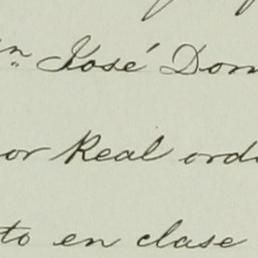 José Dom
or Real orde
to en clase